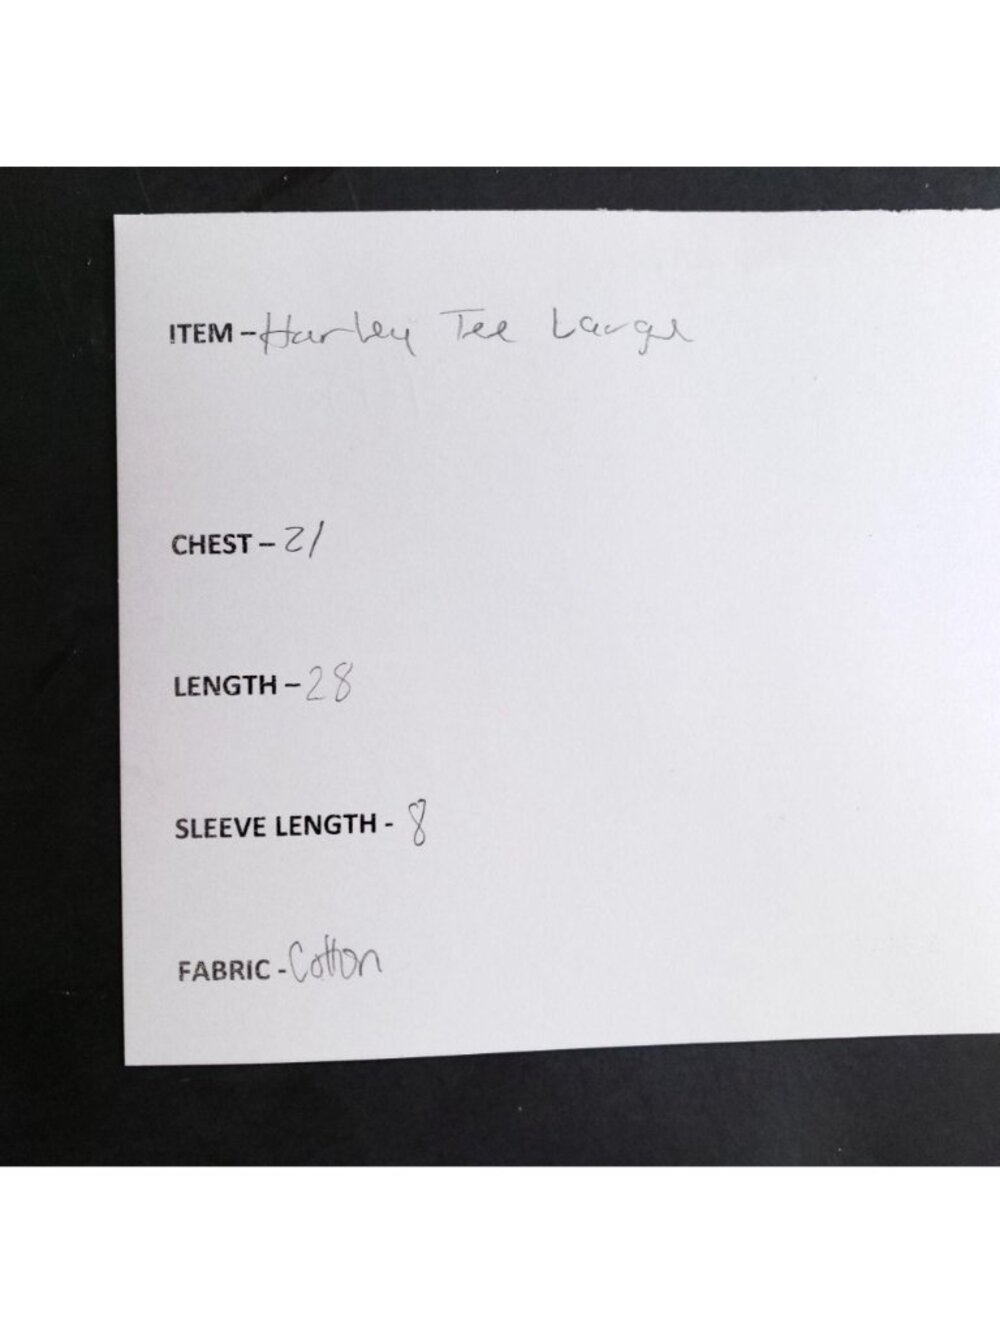 ITEM - Harley Tee Large
CHEST - 21
LENGTH - 28
SLEEVE LENGTH - 8
FABRIC - Cotton